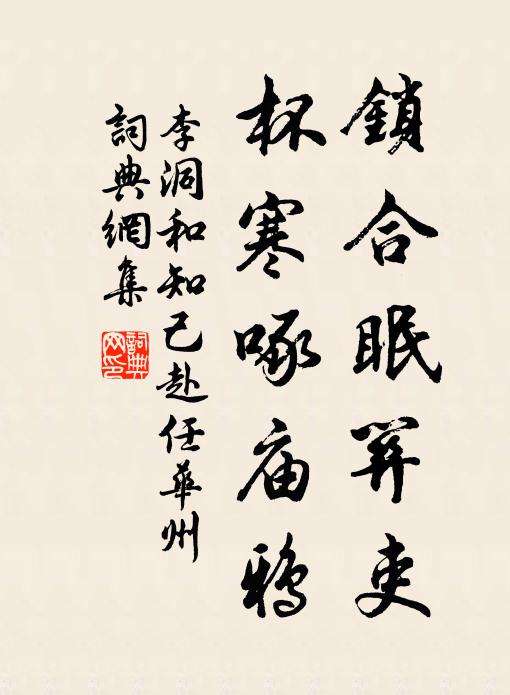 鎖合眠關吏
杯寒啄庙鴉
李洞和知己赴任華州
詞典網集
詞典网印